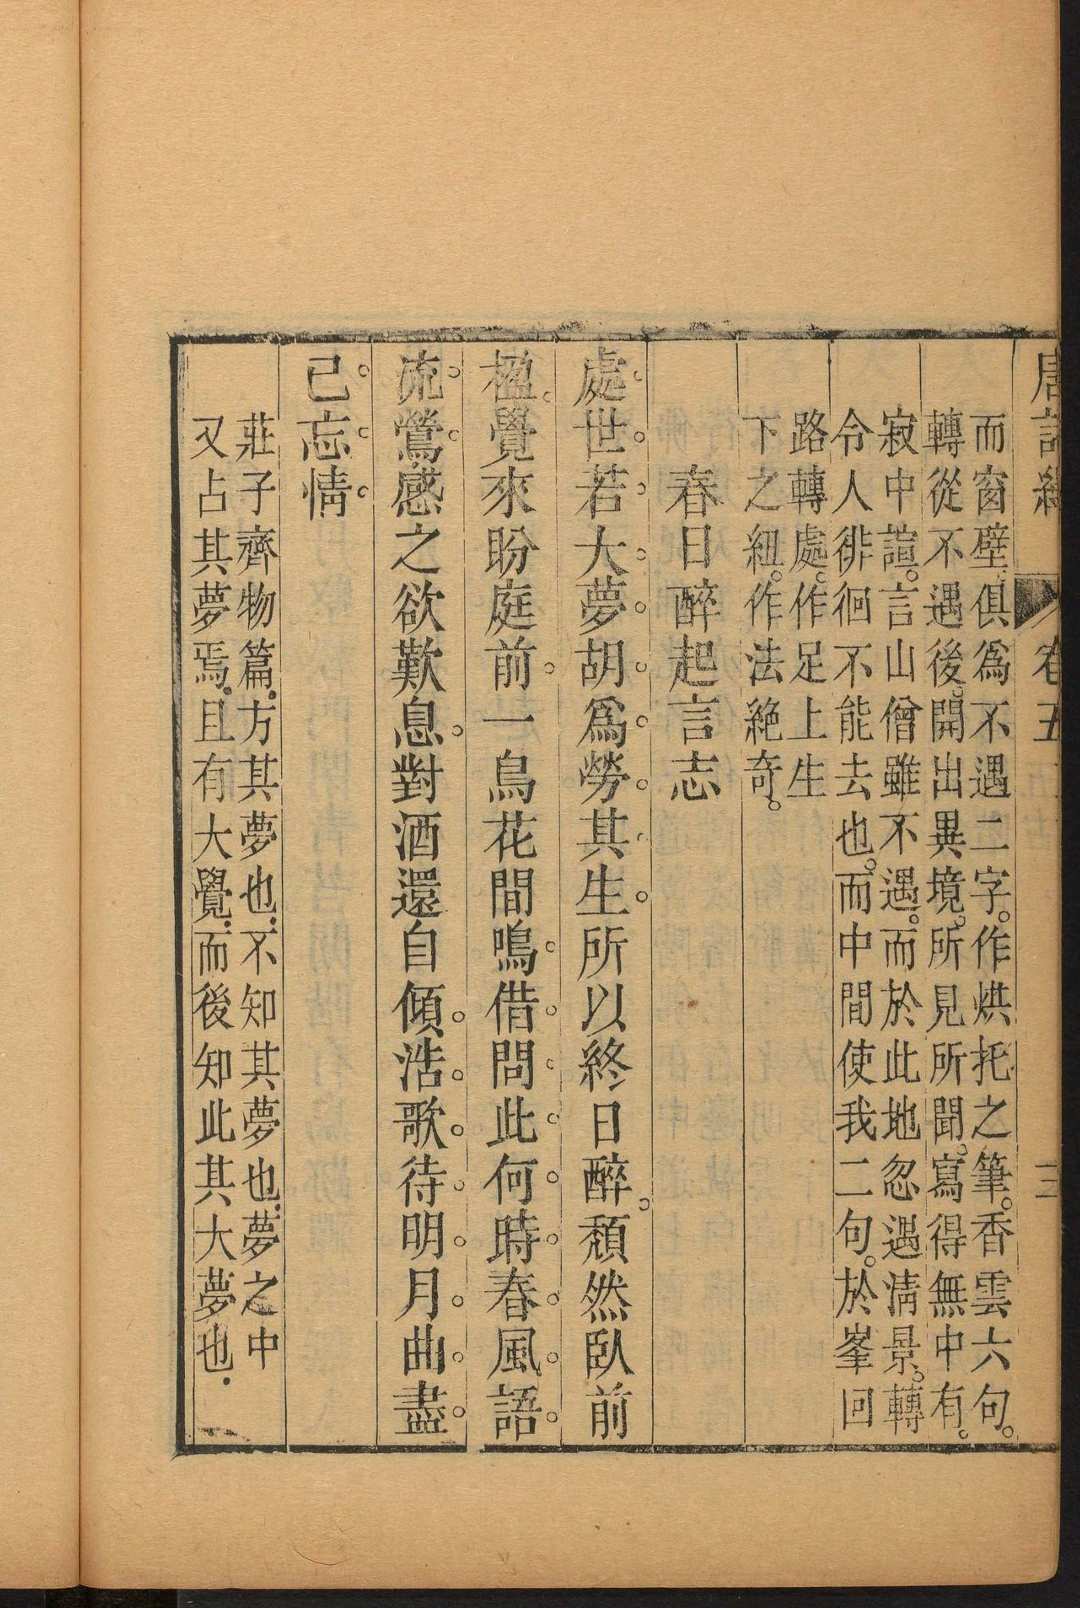 唐詩 卷五 三
而窗壁俱爲不遇二字。作烘托之筆。香雲六句。
轉從不遇後。開出異境。所見所聞。寫得無中有。
寂中諠。言山僧雖不遇。而於此地忽遇淸景。轉
令人徘徊不能去也。而中間使我二句。於峯回
路轉處。作足上生
下之紐。作法絶奇。
春日醉起言志
處世若大夢胡爲勞其生所以終日醉頹然臥前
楹覺來盼庭前一鳥花間鳴借問此何時春風語
流鶯感之欲歎息對酒還自傾浩歌待明月曲盡
已忘情
莊子齊物篇。方其夢也。不知其夢也。夢之中
又占其夢焉。且有大覺。而後知此其大夢也。